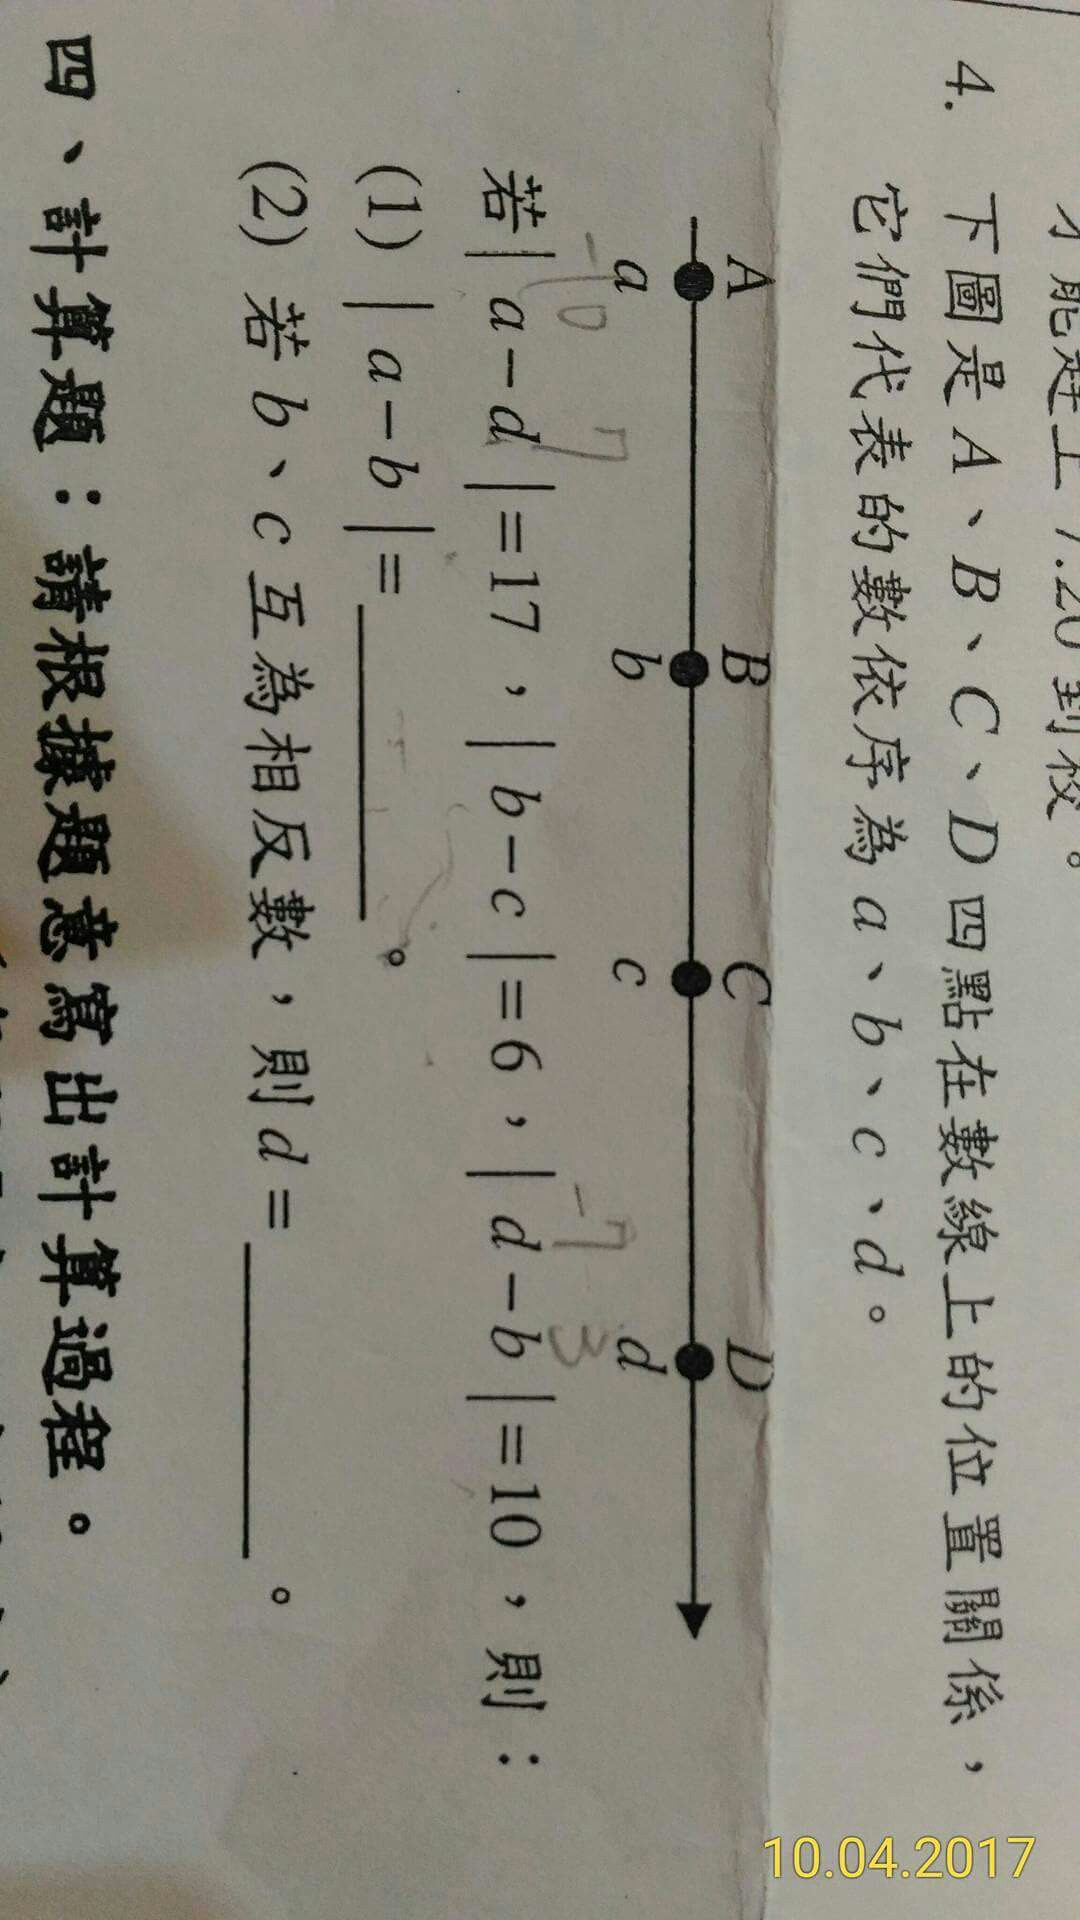 到校。
4. 下圖是 A、B、C、D 四點在數線上的位置關係，
它們代表的數依序為 a、b、c、d。
A B C D
a b c d
-10 7 -7 3
若｜a－d｜=17，｜b－c｜=6，｜d－b｜=10，則：
(1) ｜a－b｜=＿＿＿＿＿＿。
(2) 若 b、c 互為相反數，則 d =＿＿＿＿＿＿。
四、計算題：請根據題意寫出計算過程。
10.04.2017